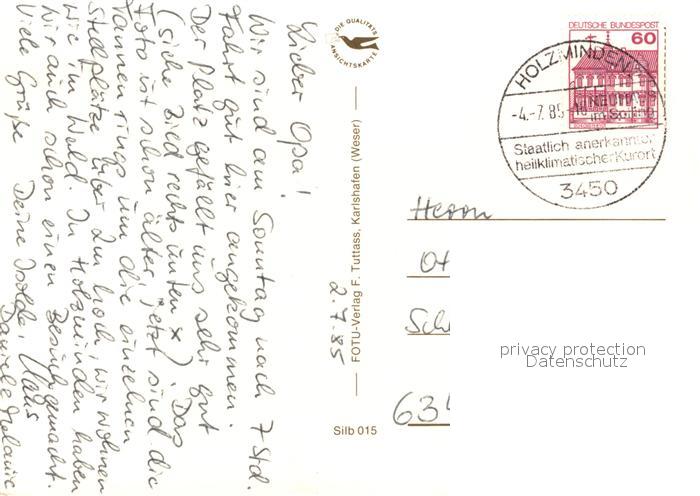 Lieber Opa!
Wir sind am Sonntag nach 7 Std.
Fahrt gut hier angekommen.
Der Platz gefällt uns sehr gut
(siehe Bild rechts unten x). Das
Foto ist schon älter, jetzt sind die
Tannen rings um die einzelnen
Stellplätze über 2m hoch, wir wohnen
wie im Wald. In Holzminden haben
wir auch schon einen Besuch gemacht.
Viele Grüße Deine Isolde, Hans
Daniel + Melanie
2.7.85
DIE QUALITÄTS
ANSICHTSKARTE
FOTU-Verlag F. Tuttass, Karlshafen (Weser)
Silb 015
DEUTSCHE BUNDESPOST
60
HOLZMINDEN
-4.-7.85-
NEUHAUS
im Solling
Staatlich anerkannter
heilklimatischer Kurort
3450
Herrn
Ot
Sch
634
privacy protection
Datenschutz